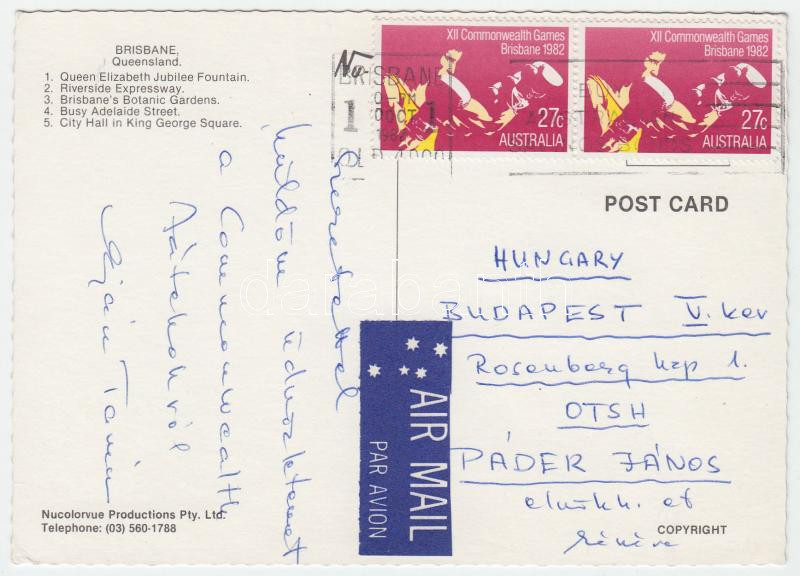 BRISBANE,
Queensland.
1. Queen Elizabeth Jubilee Fountain.
2. Riverside Expressway.
3. Brisbane's Botanic Gardens.
4. Busy Adelaide Street.
5. City Hall in King George Square.
XII Commonwealth Games
Brisbane 1982
27c
AUSTRALIA
XII Commonwealth Games
Brisbane 1982
27c
AUSTRALIA
BRISBANE
1 1
OCT
POST CARD
Szeretettel
küldöm üdvözletemet
a Commonwealth
Játékokról
HUNGARY
BUDAPEST V. ker
Rosenberg hzp 1.
OTSH
PÁDER JÁNOS
elnökh. et
részére
AIR MAIL
PAR AVION
Nucolorvue Productions Pty. Ltd.
Telephone: (03) 560-1788
COPYRIGHT